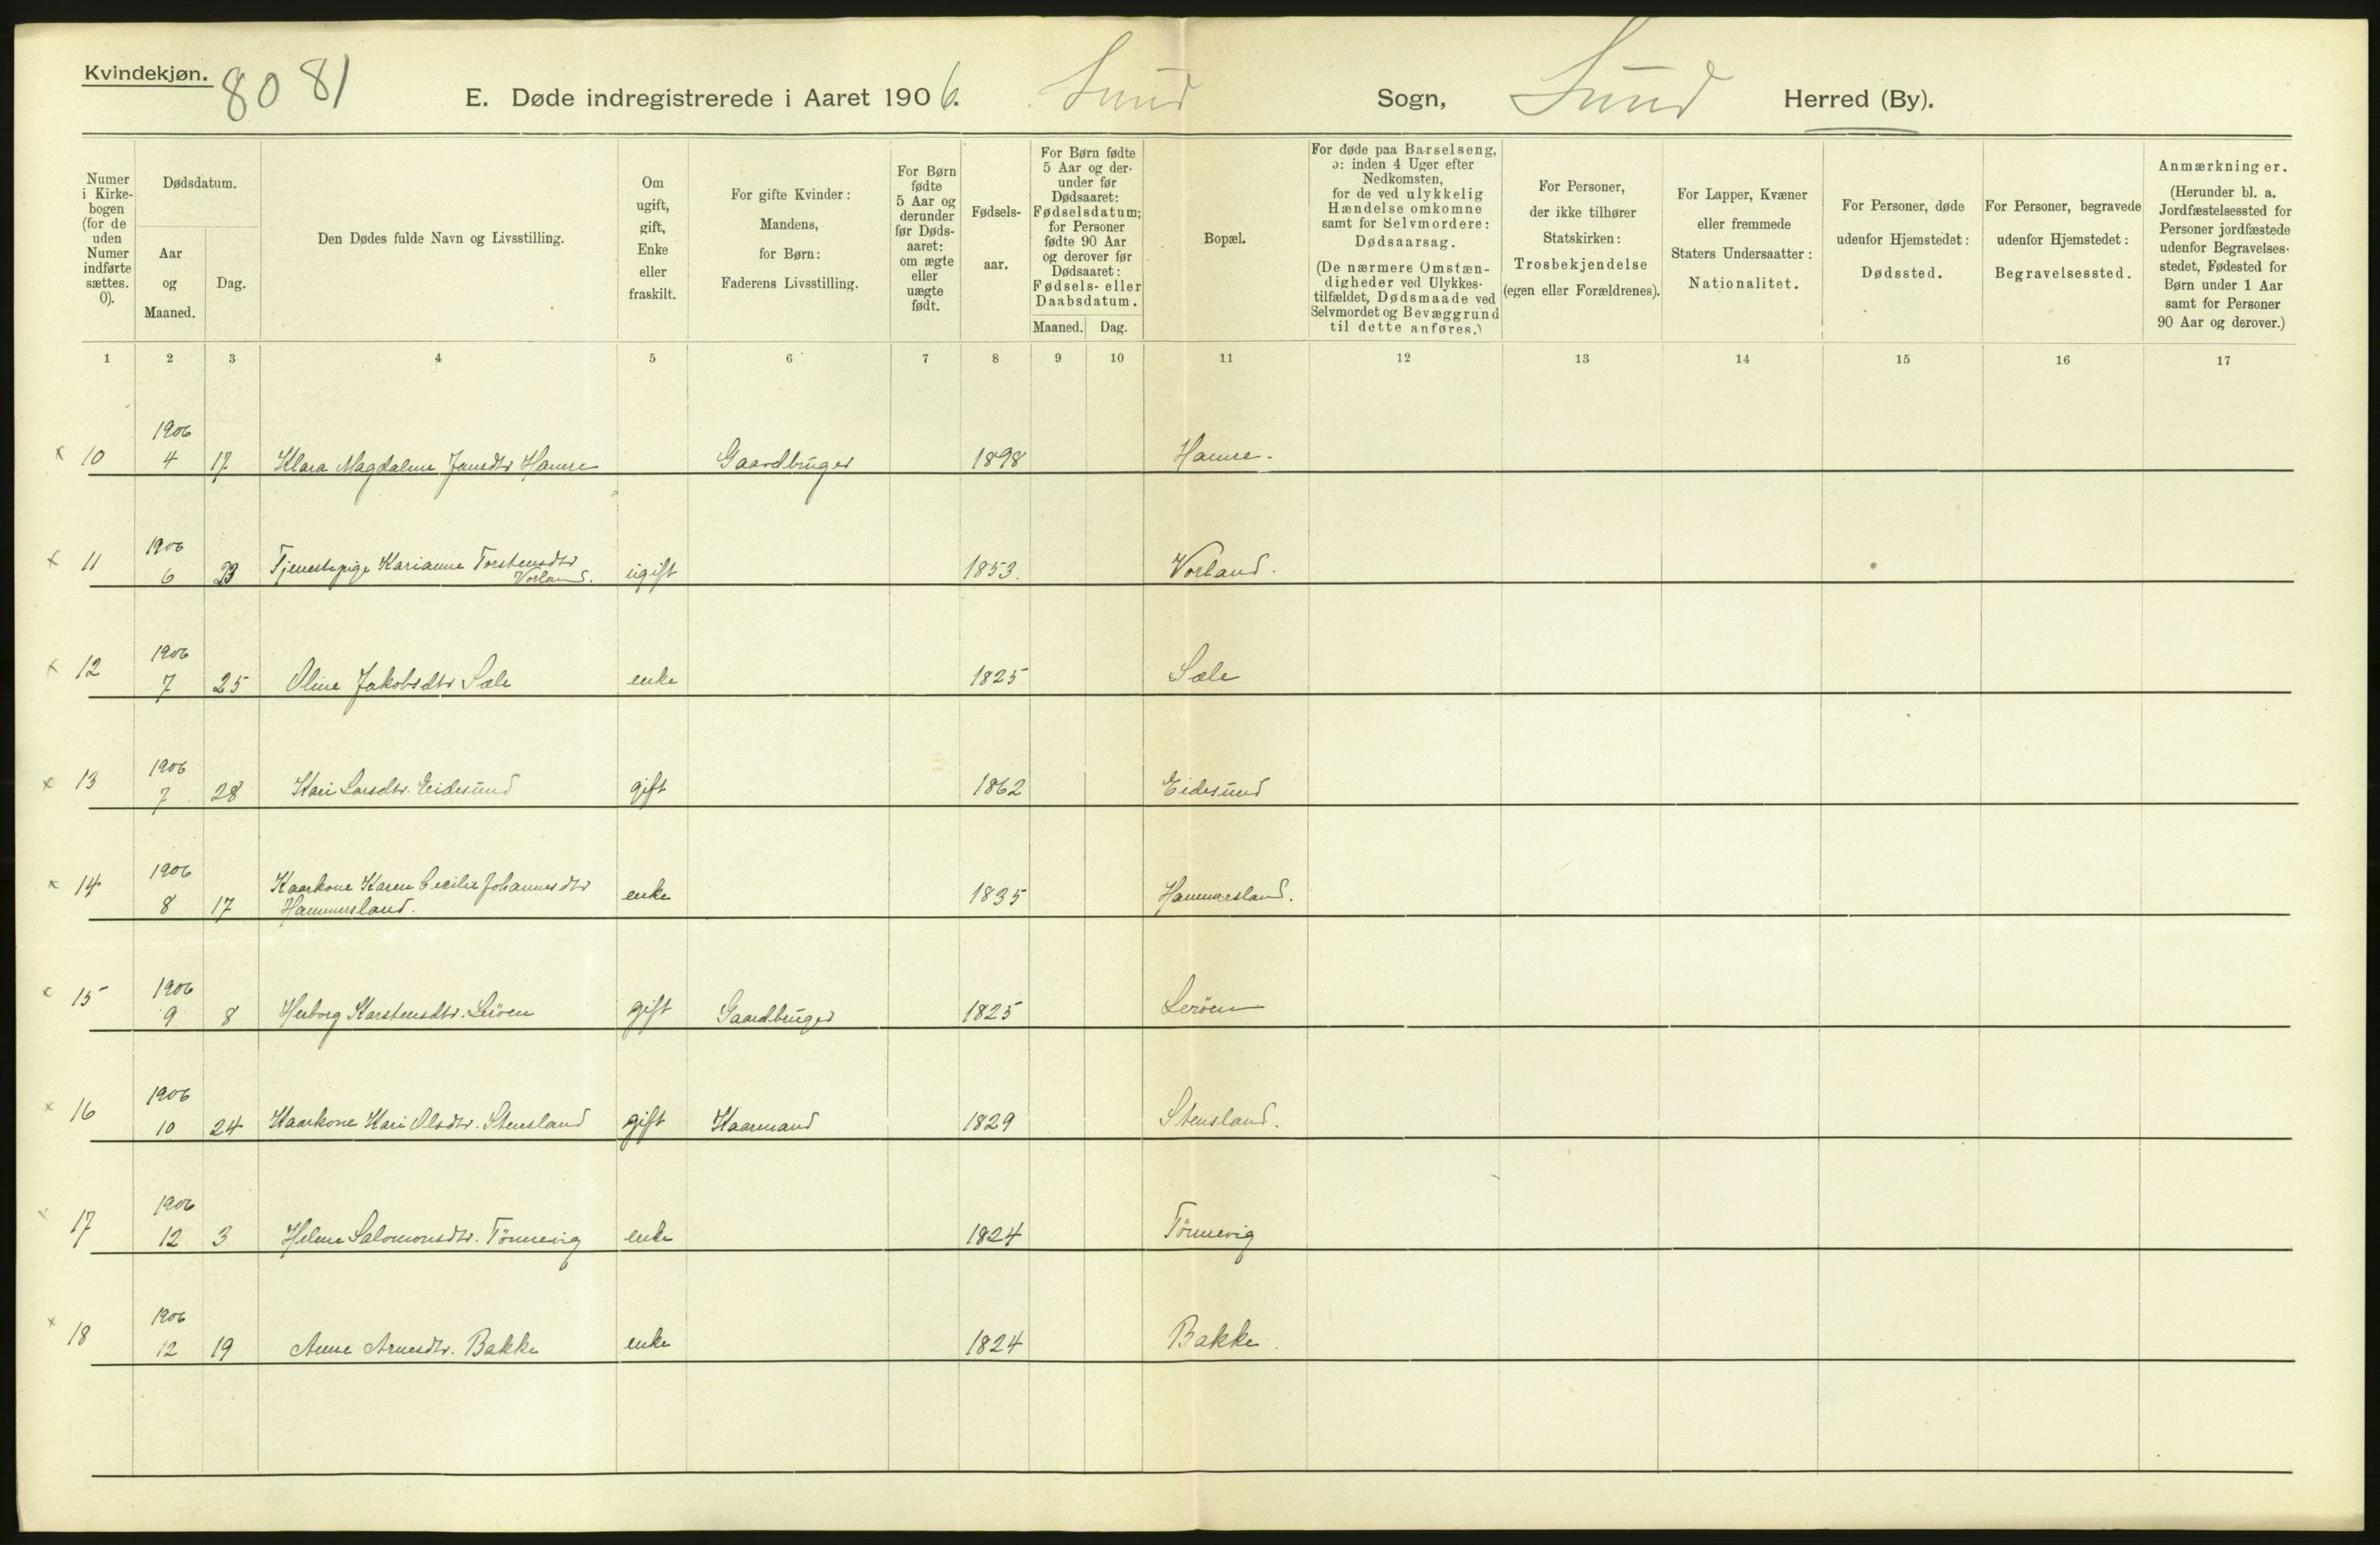 Kvindekjøn.
80 81
E. Døde indregistrerede i Aaret 1906. Sund Sogn, Sund Herred (By).
Numer i Kirkebogen (for de uden Numer indførte sættes. 0).
Dødsdatum.
Aar og Maaned.
Dag.
Den Dødes fulde Navn og Livsstilling.
Om ugift, gift, Enke eller fraskilt.
For gifte Kvinder: Mandens, for Børn: Faderens Livsstilling.
For Børn fødte 5 Aar og derunder før Dødsaaret: om ægte eller uægte født.
Fødselsaar.
For Børn fødte 5 Aar og derunder før Dødsaaret: Fødselsdatum; for Personer fødte 90 Aar og derover før Dødsaaret: Fødsels- eller Daabsdatum.
Maaned. Dag.
Bopæl.
For døde paa Barselseng, ɔ: inden 4 Uger efter Nedkomsten, for de ved ulykkelig Hændelse omkomne samt for Selvmordere: Dødsaarsag. (De nærmere Omstændigheder ved Ulykkestilfældet, Dødsmaade ved Selvmordet og Bevæggrund til dette anføres.)
For Personer, der ikke tilhører Statskirken: Trosbekjendelse (egen eller Forældrenes).
For Lapper, Kvæner eller fremmede Staters Undersaatter: Nationalitet.
For Personer, døde udenfor Hjemstedet: Dødssted.
For Personer, begravede udenfor Hjemstedet: Begravelsessted.
Anmærkninger. (Herunder bl. a. Jordfæstelsessted for Personer jordfæstede udenfor Begravelsesstedet, Fødested for Børn under 1 Aar samt for Personer 90 Aar og derover.)
1 2 3 4 5 6 7 8 9 10 11 12 13 14 15 16 17
1906
x 10 4 17 Klara Magdalene Jansdtr Hamre Gaardbruger 1898 Hamre.
1906
x 11 6 23 Tjenestepige Karianne Torstensdtr Vorland. ugift 1853. Vorland.
1906
x 12 7 25 Oline Jakobsdtr Sæle enke 1825 Sæle
1906
x 13 7 28 Kari Larsdtr. Eidesund gift 1862 Eidesund
1906
x 14 8 17 Kaarkone Karen Cecilie Johannesdtr Hammersland. enke 1835 Hammersland.
1906
x 15 9 8 Herborg Karstensdtr. Leröen gift Gaardbruger 1825 Leröen
1906
x 16 10 24 Kaarkone Kari Olsdtr. Stensland gift Kaarmand 1829 Stensland.
1906
x 17 12 3 Helene Salomonsdtr. Tönnevig enke 1824 Tönnevig
1906
x 18 12 19 Anne Arnesdtr. Bakke enke 1824 Bakke.